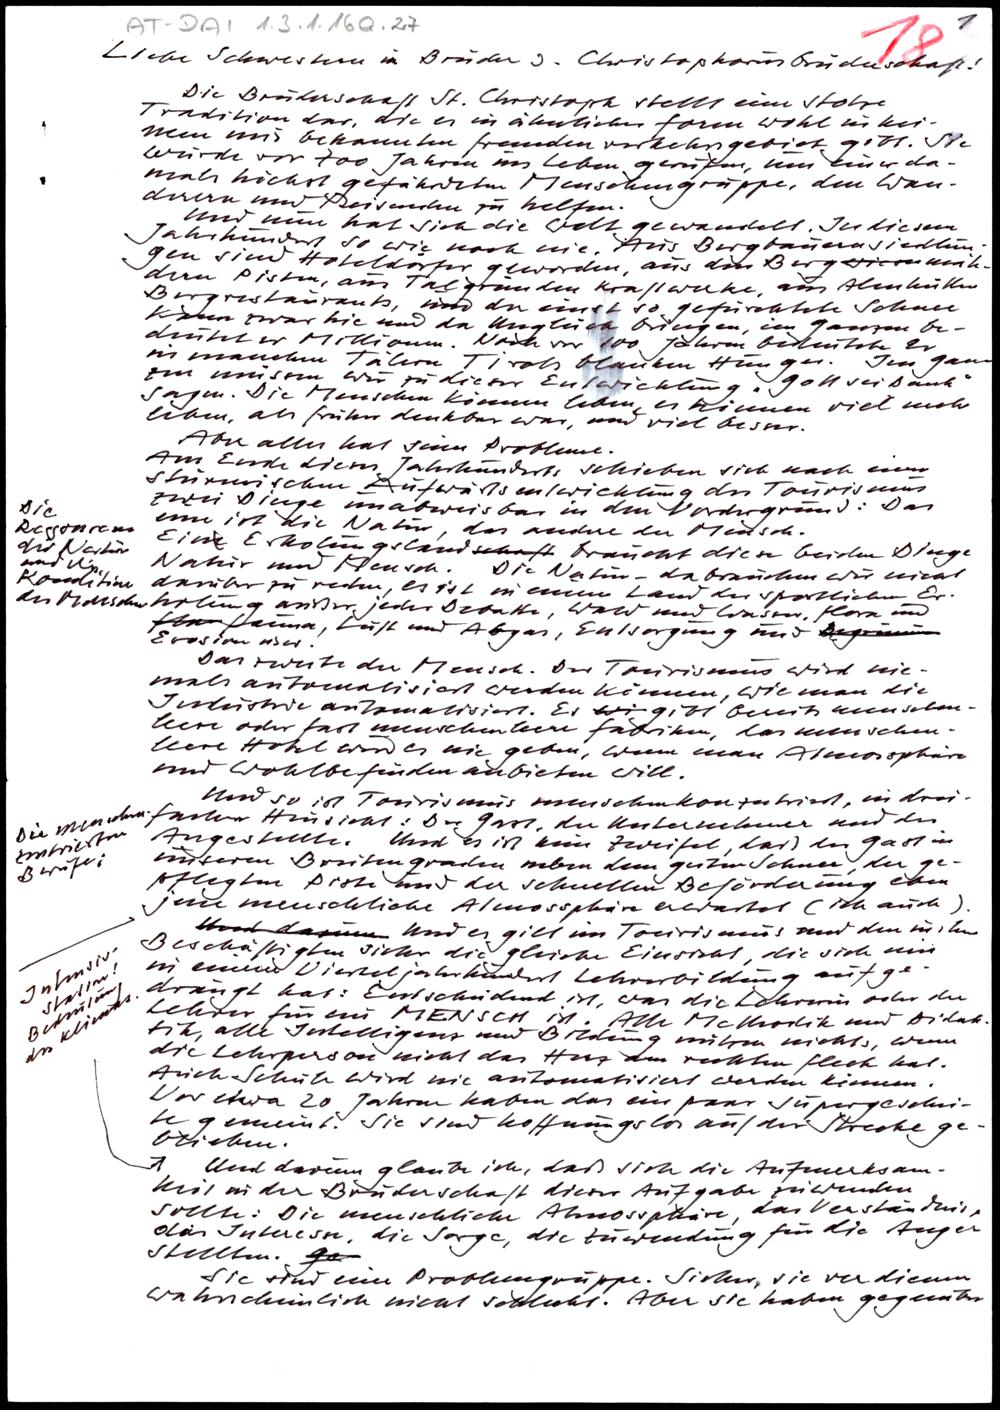 AT-DAI 1.3.1.160.27
18
1
Liebe Schwestern in Brüder d. Christophorusbruderschaft!
Die Bruderschaft St. Christoph stellt eine stolze
Tradition dar, die es in ähnlicher Form wohl in kei-
nem mir bekannten fremden verkehrsgebiet gibt. Sie
wurde vor 700 Jahren ins Leben gerufen, um einer da-
mals höchst gefährdeten Menschengruppe, den Wan-
derern und Reisenden zu helfen.
Und nun hat sich die Welt gewandelt. In diesem
Jahrhundert so wie noch nie. Aus Bergbauernsiedlun-
gen sind Hoteldörfer geworden, aus den Berg
dern Pisten, aus Talgründen Kraftwerke, aus Almhütten
Bergrestaurants, und der einst so gefürchtete Schnee
kann zwar hie und da Unglück bringen, im ganzen be-
deutet er Millionen. Noch vor 100 Jahren bedeutete er
in manchen Tälern Tirols blanken Hunger. Im gan-
zen müssen wir zu dieser Entwicklung "Gott sei Dank"
sagen. Die Menschen können leben, es können viel mehr
leben, als früher denkbar war, und viel besser.
Aber alles hat seine Probleme.
Am Ende dieses Jahrhunderts schieben sich nach einer
stürmischen Aufwärtsentwicklung des Tourismus
zwei Dinge unabweisbar in den Vordergrund: Das
eine ist die Natur, das andere der Mensch.
Die
Ressourcen
der Natur
und die
Kondition
des Menschen
Eine Erholungslandschaft braucht diese beiden Dinge
Natur und Mensch. Die Natur - da brauchen wir nicht
darüber zu reden, es ist in einem Land der sportlichen Er-
holung außer jeder Debatte, Wald und Wasser, Flora und
Fauna, Luft und Abgas, Entsorgung und
Erosion usw.
Das zweite der Mensch. Der Tourismus wird nie-
mals automatisiert werden können, wie man die
Industrie automatisiert. Es gibt bereits menschen-
leere oder fast menschenleere Fabriken, das menschen-
leere Hotel wird es nie geben, wenn man Atmossphäre
und Wohlbefinden anbieten will.
Und so ist Tourismus menschenkonzentriert, in drei-
facher Hinsicht: Der Gast, der Unternehmer und der
Angestellte. Und es ist kein Zweifel, daß der Gast in
unseren Breitengraden neben dem guten Schnee, der ge-
pflegten Piste und der schnellen Beförderung eben
jene menschliche Atmossphäre erwartet (ich auch).
Die menschen-
zentrierten
Berufe:
Und darum Und es gilt im Tourismus und den in ihm
Beschäftigten sicher die gleiche Einsicht, die sich mir
in einem Vierteljahrhundert Lehrerbildung aufge-
drängt hat: Entscheidend ist, was die Lehrerin oder der
Lehrer für ein MENSCH ist. Alle Methodik und Didak-
tik, alle Intelligenz und Bildung nützen nichts, wenn
die Lehrperson nicht das Herz am rechten Fleck hat.
Auch Schule wird nie automatisiert werden können.
Vor etwa 20 Jahren haben das ein paar Supergeschei-
te gemeint. Sie sind hoffnungslos auf der Strecke ge-
blieben.
Intensiv-
station!
Betreuung
des Klienten.
Und darum glaube ich, daß sich die Aufmerksam-
keit in der Bruderschaft dieser Aufgabe zuwenden
sollte: Die menschliche Atmossphäre, das Verständnis,
das Interesse, die Sorge, die Zuwendung für die Ange-
stellten.
Sie sind eine Problemgruppe. Sicher, sie verdienen
wahrscheinlich nicht schlecht. Aber sie haben gegenüber